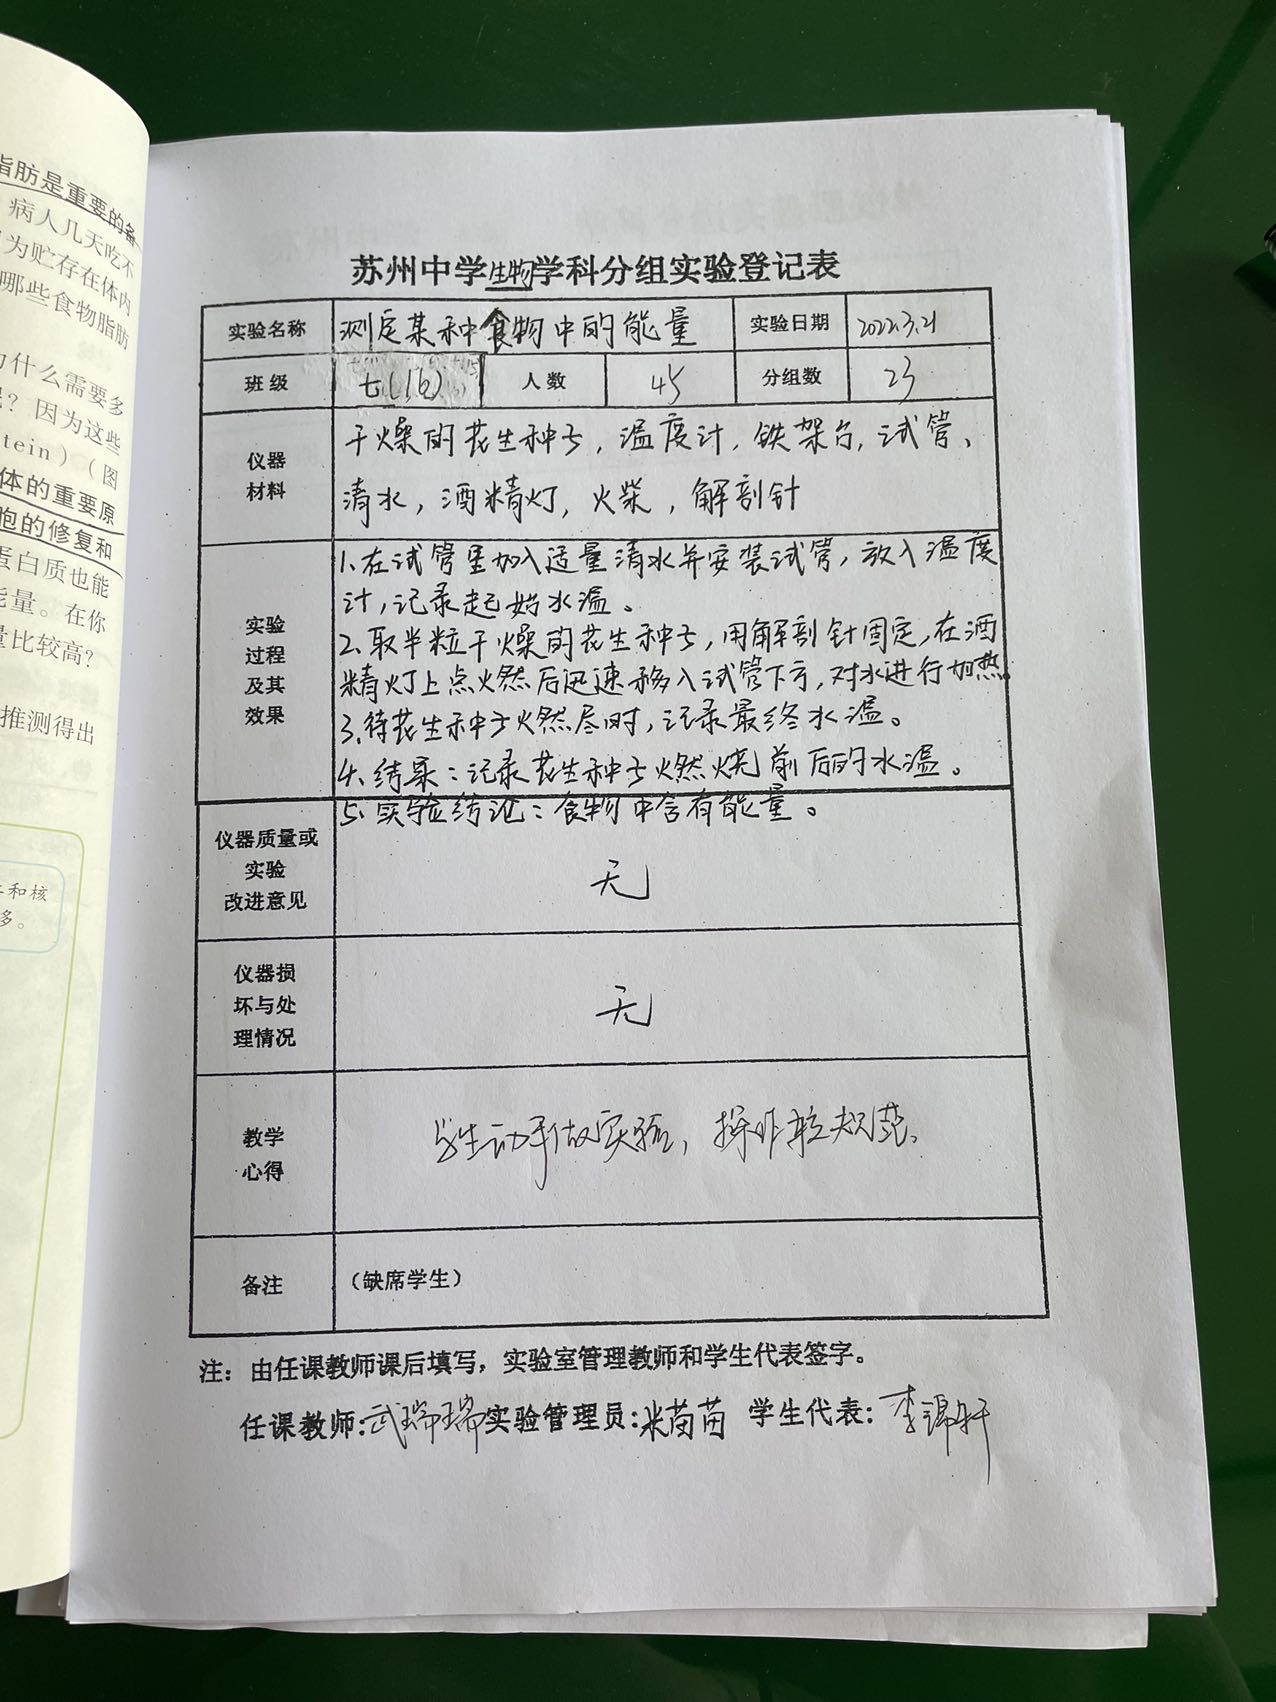 脂肪是重要的备
病人几天吃不
为贮存在体内
哪些食物脂肪
为什么需要多
呢？因为这些
tein）（图
体的重要原
胞的修复和
蛋白质也能
能量。在你
量比较高？
推测得出
和核
多。
苏州中学生物学科分组实验登记表
实验名称 测定某种食物中的能量 实验日期 2022.3.21
班级 七(16) 人数 45 分组数 23
仪器材料
干燥的花生种子，温度计，铁架台，试管、
清水，酒精灯，火柴，解剖针
实验
过程
及其
效果
1.在试管里加入适量清水并安装试管，放入温度
计，记录起始水温。
2.取半粒干燥的花生种子，用解剖针固定，在酒
精灯上点火然后迅速移入试管下方，对水进行加热。
3.待花生种子火然尽时，记录最终水温。
4.结果：记录花生种子火然烧前后的水温。
5.实验结论：食物中含有能量。
仪器质量或
实验
改进意见
无
仪器损
坏与处
理情况
无
教学
心得
学生动手做实验，操作较规范。
备注 （缺席学生）
注：由任课教师课后填写，实验室管理教师和学生代表签字。
任课教师:武瑞瑞 实验管理员:米苗苗 学生代表:李锦轩